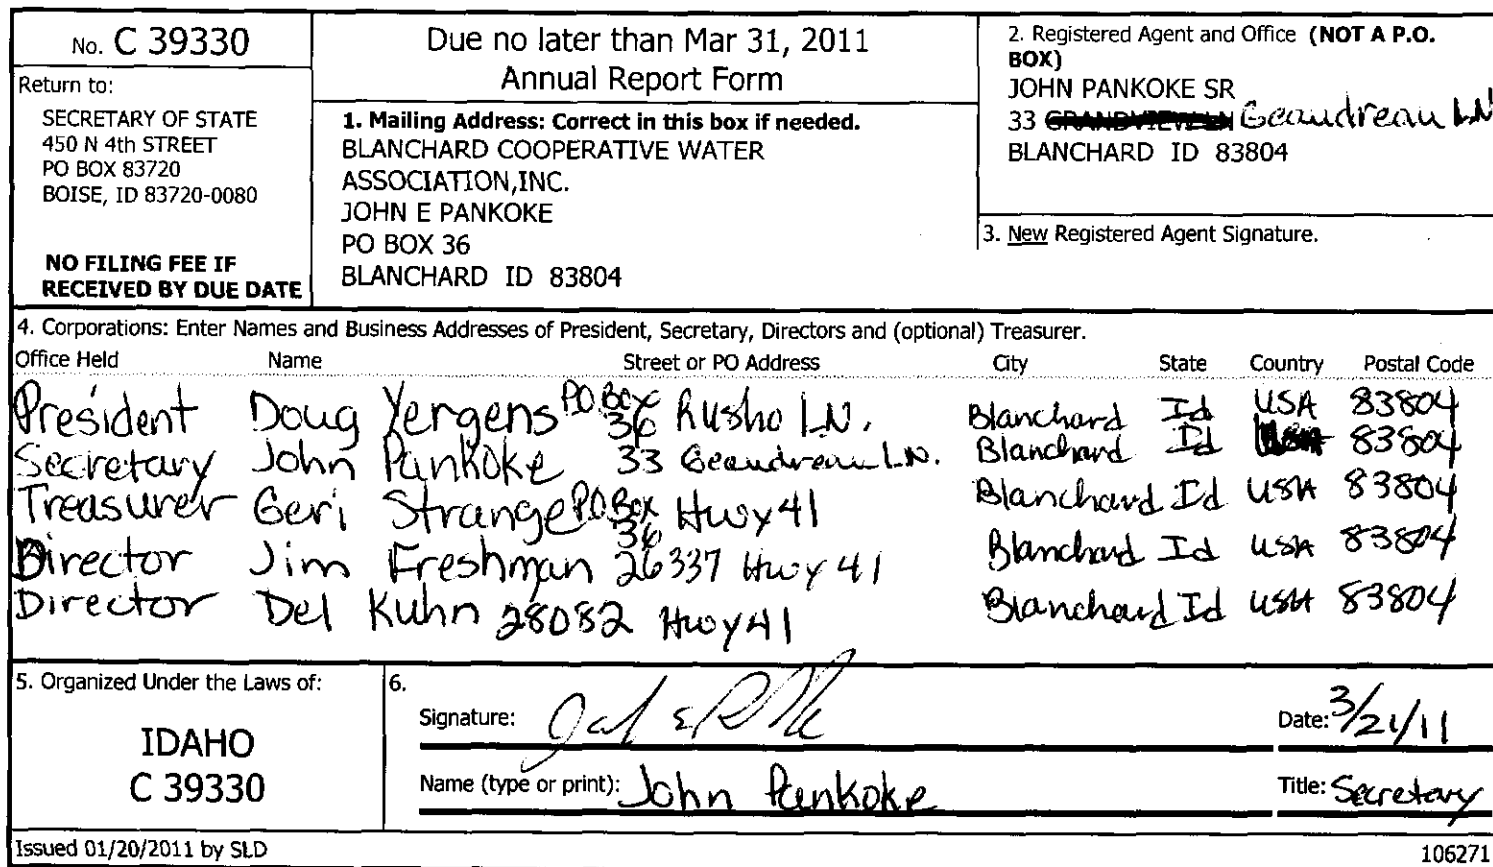 No. C 39330
Return to:
SECRETARY OF STATE
450 N 4th STREET
PO BOX 83720
BOISE, ID 83720-0080
NO FILING FEE IF
RECEIVED BY DUE DATE
Due no later than Mar 31, 2011
Annual Report Form
1. Mailing Address: Correct in this box if needed.
BLANCHARD COOPERATIVE WATER
ASSOCIATION,INC.
JOHN E PANKOKE
PO BOX 36
BLANCHARD ID 83804
2. Registered Agent and Office (NOT A P.O.
BOX)
JOHN PANKOKE SR
33 Geaudreau LN
BLANCHARD ID 83804
3. New Registered Agent Signature.
4. Corporations: Enter Names and Business Addresses of President, Secretary, Directors and (optional) Treasurer.
Office Held Name Street or PO Address City State Country Postal Code
President Doug Yergens PO Box 36 Rusho LN. Blanchard Id USA 83804
Secretary John Pankoke 33 Geaudreau LN. Blanchard Id USA 83804
Treasurer Geri Strange PO Box 36 Hwy 41 Blanchard Id USA 83804
Director Jim Freshman 26337 Hwy 41 Blanchard Id USA 83804
Director Del Kuhn 28082 Hwy 41 Blanchard Id USA 83804
5. Organized Under the Laws of:
IDAHO
C 39330
6.
Signature:
Date: 3/21/11
Name (type or print): John Pankoke
Title: Secretary
Issued 01/20/2011 by SLD
106271